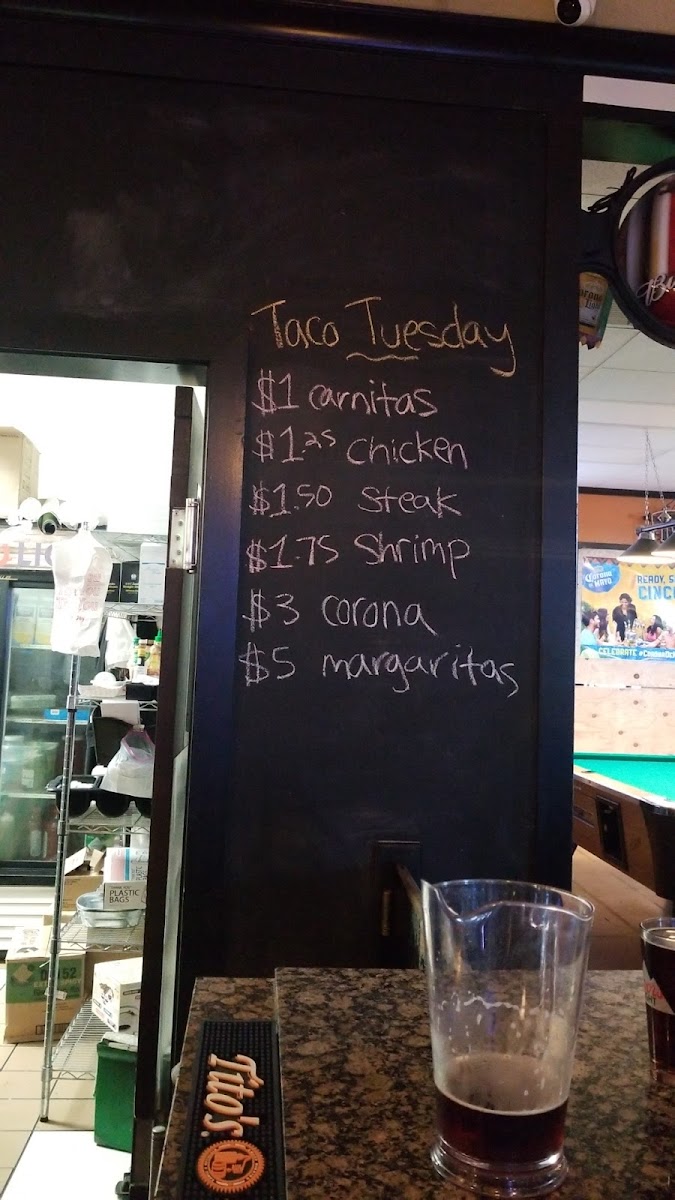 Taco Tuesday
$1 carnitas
$1.25 Chicken
$1.50 Steak
$1.75 Shrimp
$3 corona
$5 margaritas
READY, S
CINC
CELEBRATE
PLASTIC
BAGS
Tito's